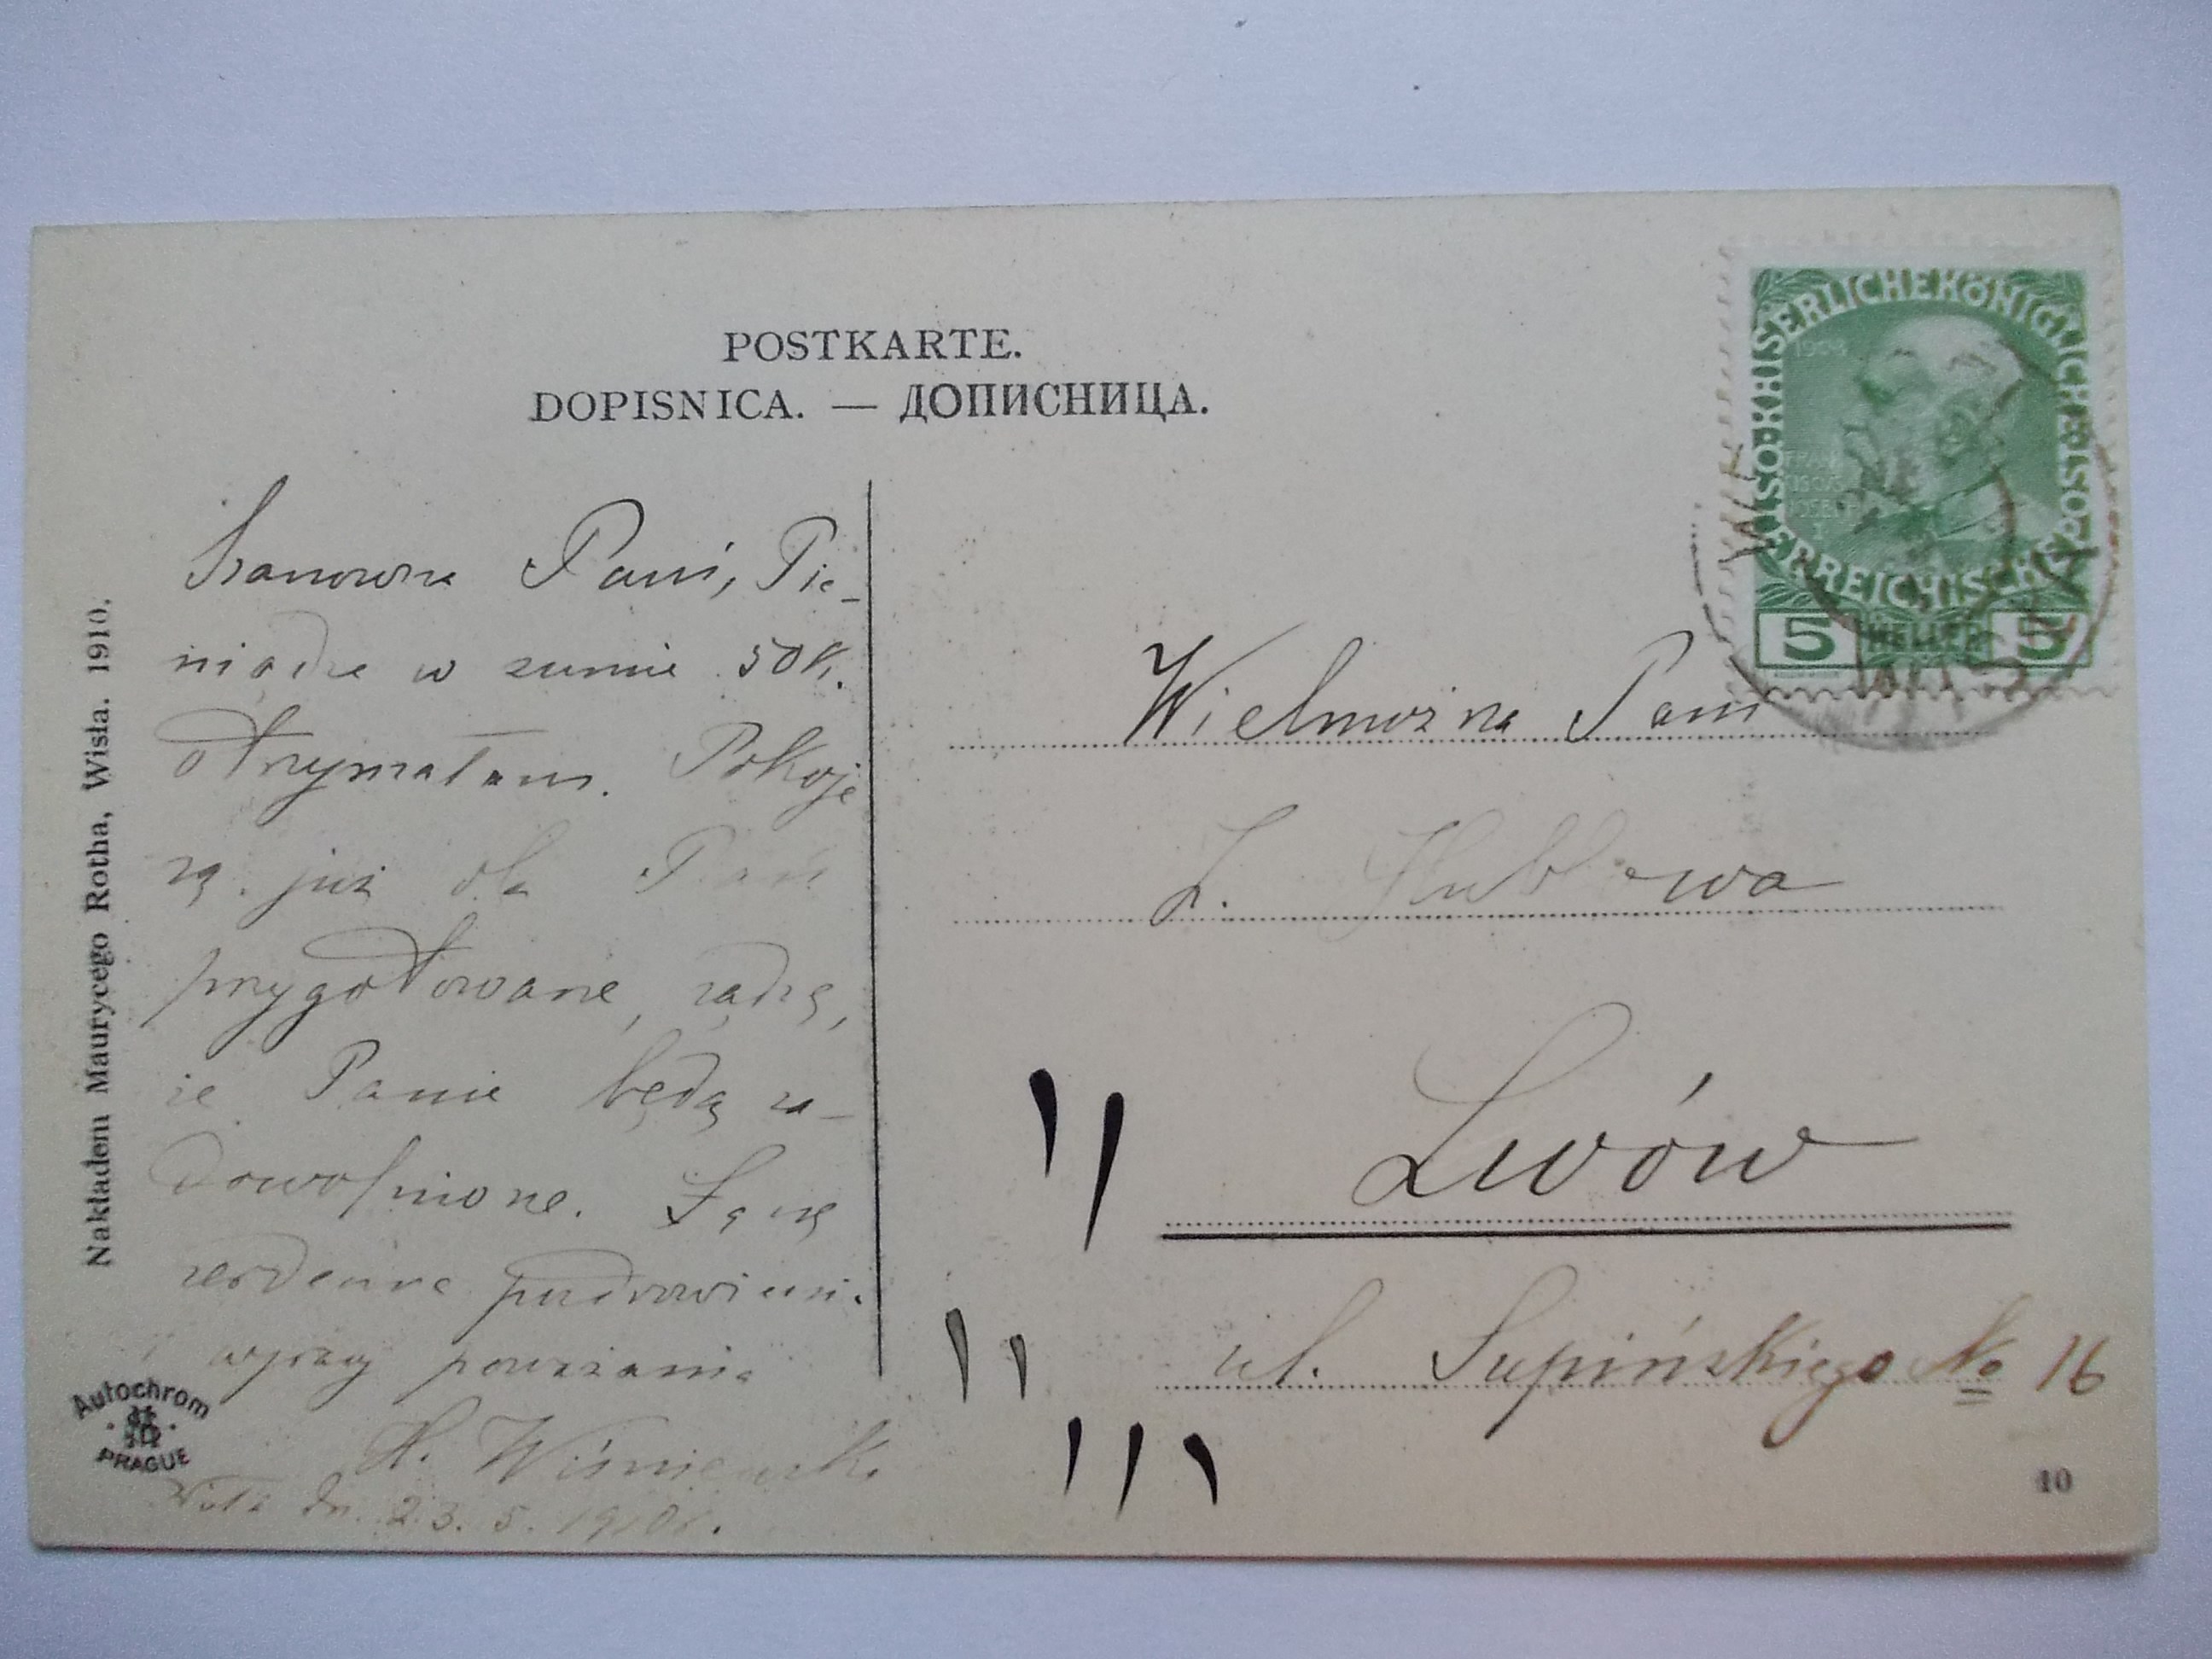 POSTKARTE.
DOPISNICA. — ДОПИСНИЦА.
Szanowna Pani, Pie-
niądze w sumie 50K.
otrzymałam. Pokoje
są już dla Pań
przygotowane, sądzę,
że Panie będą za-
dowolnione. Łączę
serdeczne pozdrowieni.
i wyrazy poważania
H. Wiśniewska
Wisła dn. 23. 5. 1910r.
Nakładem Maurycego Rotha, Wisła. 1910.
Autochrom
PRAGUE
KAISERLICHE KÖNIGLICHE ÖSTERREICHISCHE POST
1908
5 HELLER 5
Wielmożna Pani
Lwów
ul. Supińskiego No 16
40